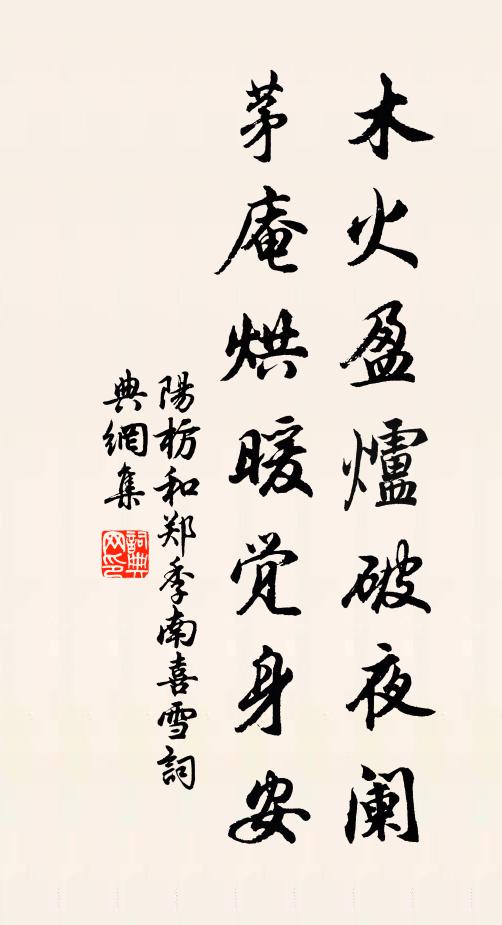 木火盈爐破夜阑
茅庵烘暖觉身安
陽枋和郑季南喜雪詞
典網集
詞典
网印